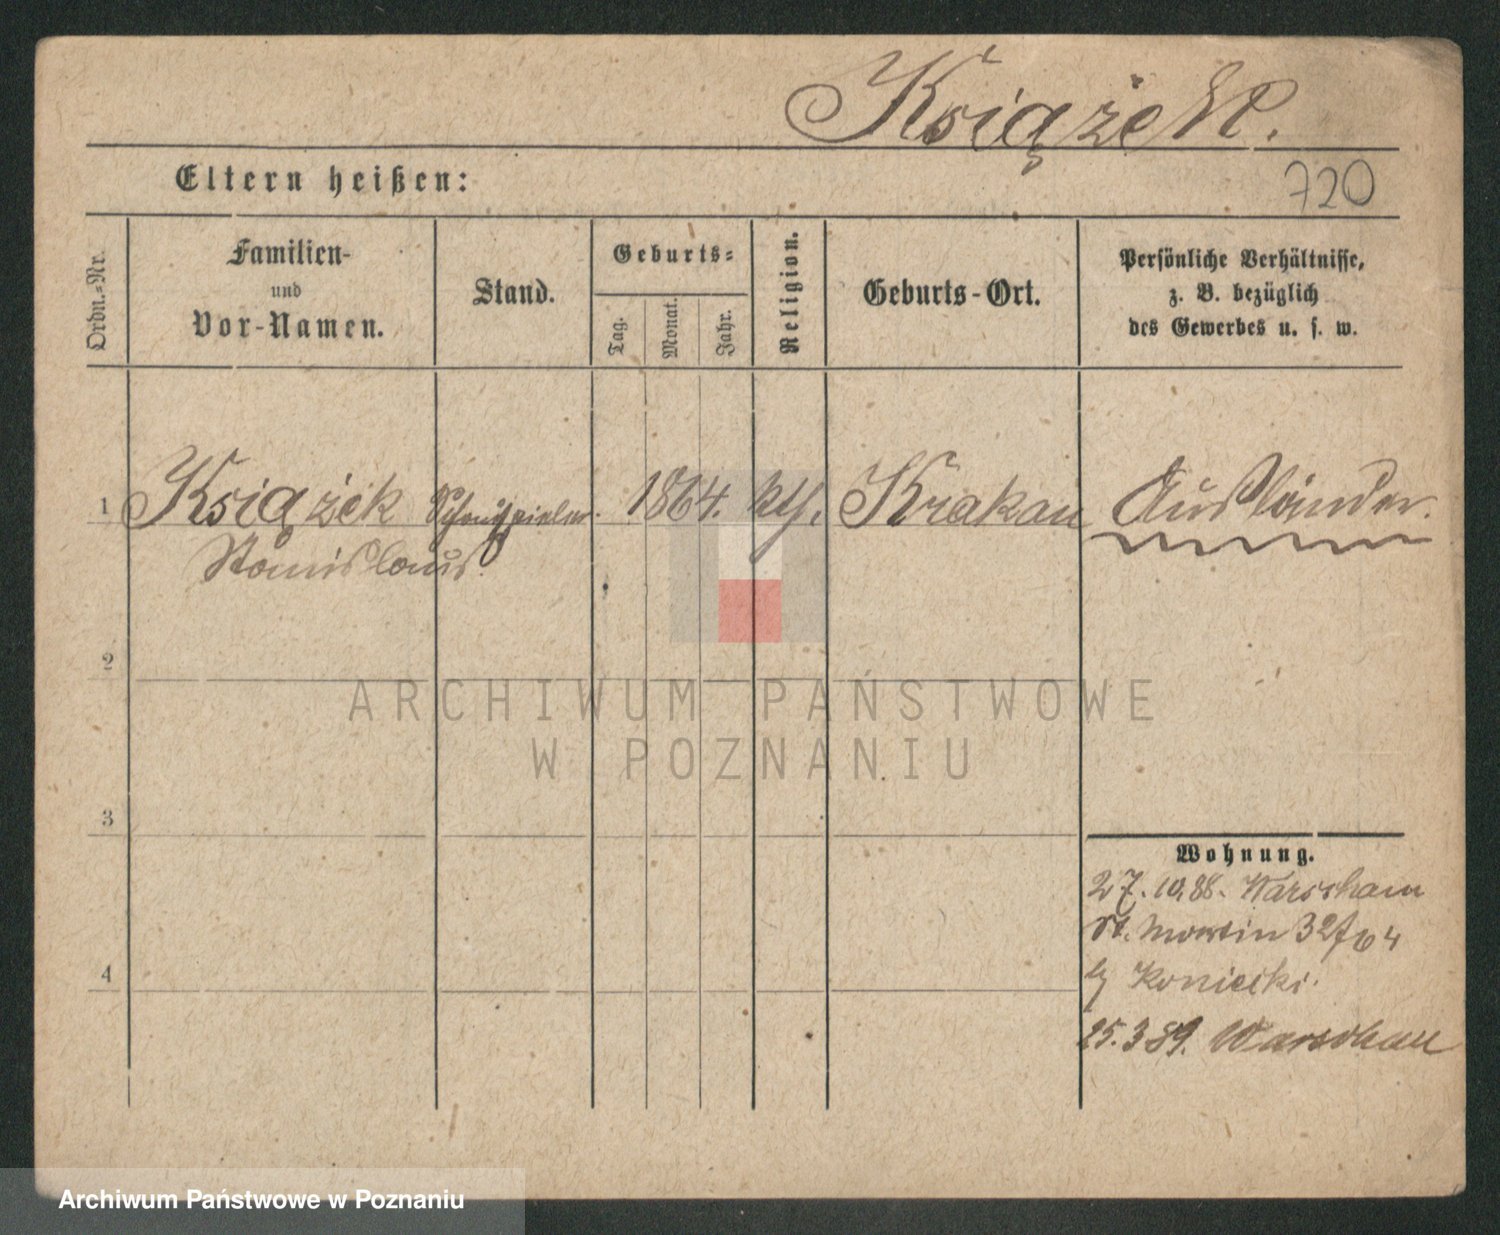 Książek.
Eltern heißen:
720
Ordn.-Nr.
Familien-
und
Vor-Namen.
Stand.
Geburts-
Tag.
Monat.
Jahr.
Religion.
Geburts-Ort.
Persönliche Verhältnisse,
z. B. bezüglich
des Gewerbes u. s. w.
1 Książek Schauspieler. 1864. kth. Krakau Ausländer.
Stanislaus.
2
ARCHIWUM PAŃSTWOWE
W POZNANIU
3
Wohnung.
27.10.88. Warschau
St. Martin 32
4
Konicki.
25.3.89. Warschau
Archiwum Państwowe w Poznaniu